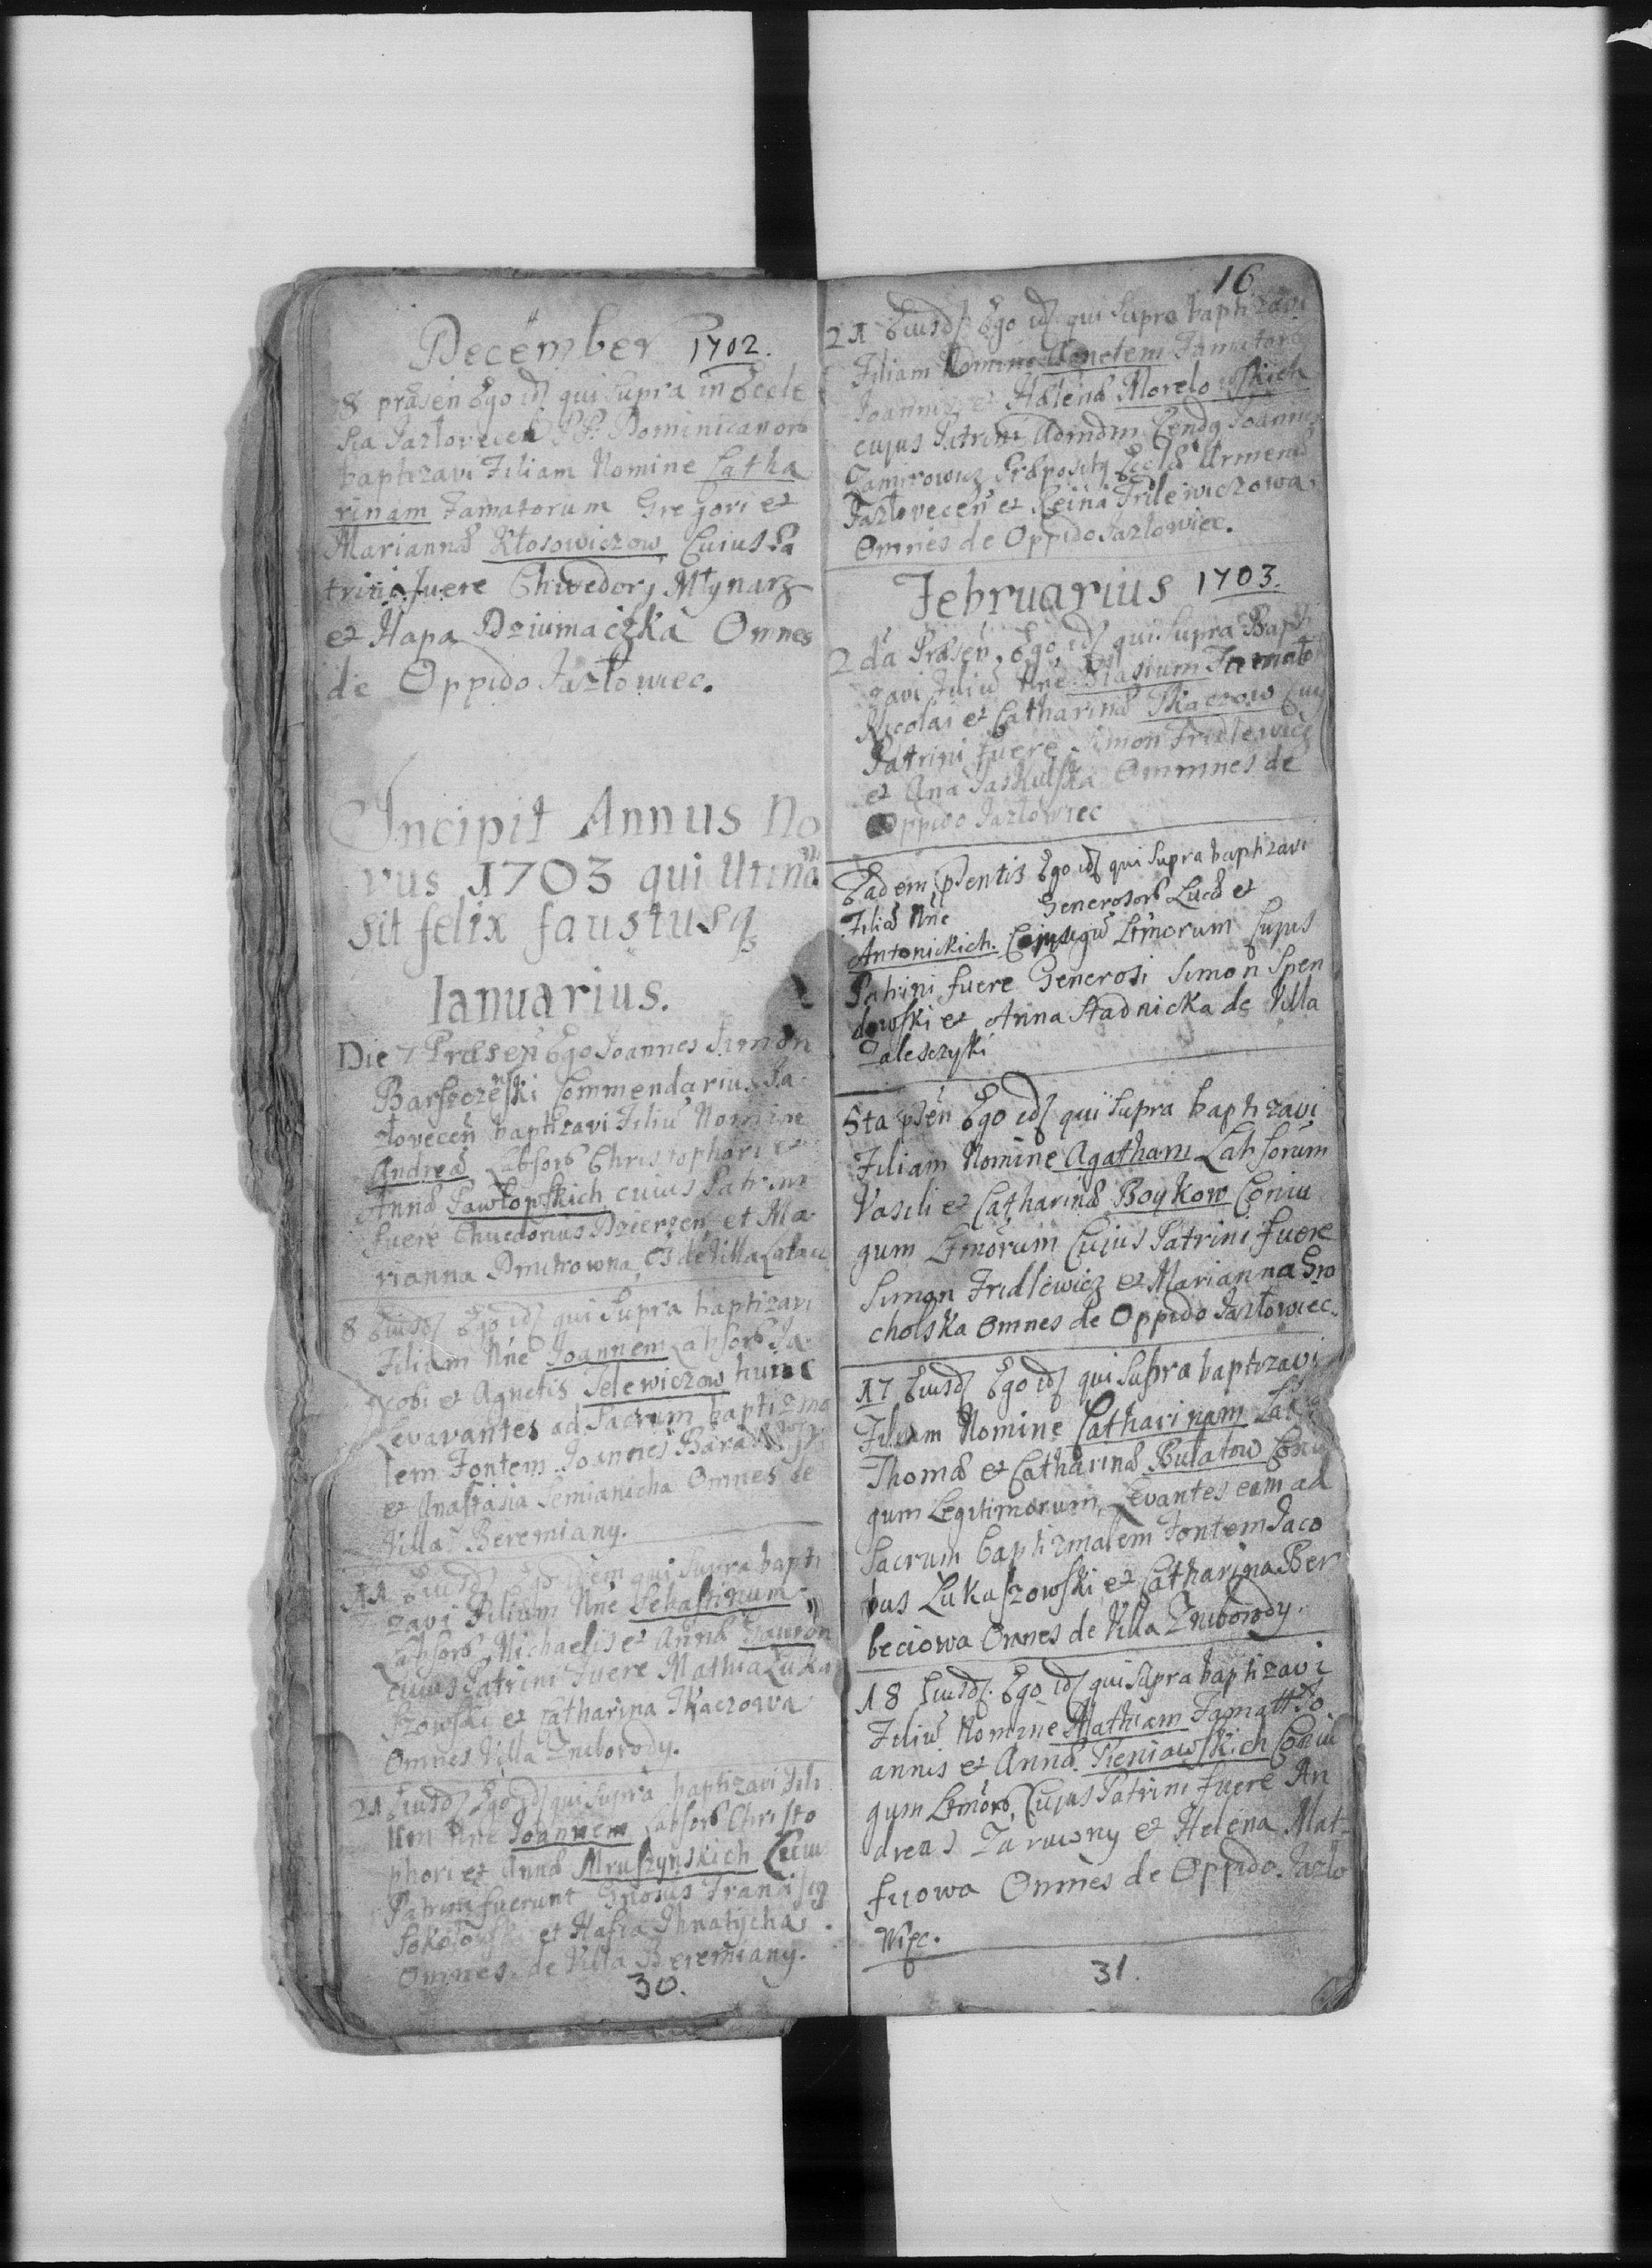 December 1702.
8 præsen Ego idz qui supra in Eccle
sia Jazlovecen PP. Dominicanorb
baptizavi Filiam Nomine Catha
rinam Famatorum Gregori et
Mariannæ Kłosowiczow Cuius Pa
trini fuere Chwedory Młynarz
et Hapa Dziumaczka Omnes
de Oppido Jazłowiec.
Incipit Annus No
vus 1703 qui Utinā
sit felix faustusq
Ianuarius.
Die 7 Præsen Ego Joannes Simon
Barszczeski Commendarius Ja
zlovecen baptizavi Filiū Nomine
Andreā Labsorb Christophori et
Annæ Pawłopskich cuius Patrini
fuere Chuedorius Dzierzen et Ma
rianna Dmitrowna de Villa
8 Eiusdz Ego idz qui supra baptizavi
Filium Nne Joannem Labsorb Ja
cobi et Agnetis Telewiczow hunc
Levavantes ad Sacrum baptizma
lem Fontem Joannes
et Anastasia Semianicha Omnes de
Villa Beremiany.
11 Eiusdz Ego idem qui supra bapti
zavi Filium Nne Sebastianum
Labsorb Michaelis et Annæ
cuius Patrini Fuere Mathia Luka
szowski et Catharina Tkaczowa
Omnes Villa Zniborody.
21 Eiusdz Ego idz qui supra baptizavi Fili
um Nne Joannem Labsorb Christo
phori et Annæ Mruszynskich Cuius
Patrini fuerunt Gnosus Franciscq
Sokołowski et Hasia Ihnatycha
Omnes de Villa Beremiany.
30.
16
21 Eiusdz Ego idz qui supra baptizavi
Filiam Nomine Agnetem Famatorb
Joannis et Helenæ Morelowskich
cujus Patrini Admdm Rendq Joannes
Zamirowicz Præpositq Ecclæ Armenæ
Jazlovecen et Reina Fridlewiczowa
Omnes de Oppido Jazlowiec.
Februarius 1703.
2da Præsen, Ego idz qui supra Bapti
zavi Filiū Nne Blasium Famator
Nicolai et Catharinæ Tkaczow Cuiq
Patrini Fuere Simon Fridlewicz
et Ana Jaskulska Ommnes de
Oppido Jazlowiec
Eadem psentis Ego idz qui supra baptizavi
Filiū Nne Generosorb Lucæ et
Antonickich Cojusgū Ltmorum Cujus
Patrini fuere Generosi Simon Spen
dowski et Anna Stadnicka de Villa
Zalesczyki
5ta psen Ego idz qui supra baptizavi
Filiam Nomine Agatham Labsorum
Vasili et Catharinæ Boykow Coniu
gum Ltmorum Cujus Patrini fuere
Simon Fridlewicz et Marianna Gro
cholska Omnes de Oppido Jazłowiec.
17 Eiusdz Ego idz qui supra baptizavi
Filiam Nomine Catharinam
Thomæ et Catharinæ Bułatow Coniu
gum Legitimorum, Levantes eam ad
Sacrum baptizmalem Fontem Jaco
bus Lukaszowski et Catharina Ber
beciowa Omnes de Villa Zniborody.
18 Eiusdz. Ego idz qui supra baptizavi
Filiū Nomine Mathiam Famatt Jo
annis et Annæ Pieniawskich Coniu
gum Ltmorb, Cujus Patrini Fuere An
dreas Zarwony et Helena Mat-
fijowa Omnes de Oppido Jazło
wiec.
31.